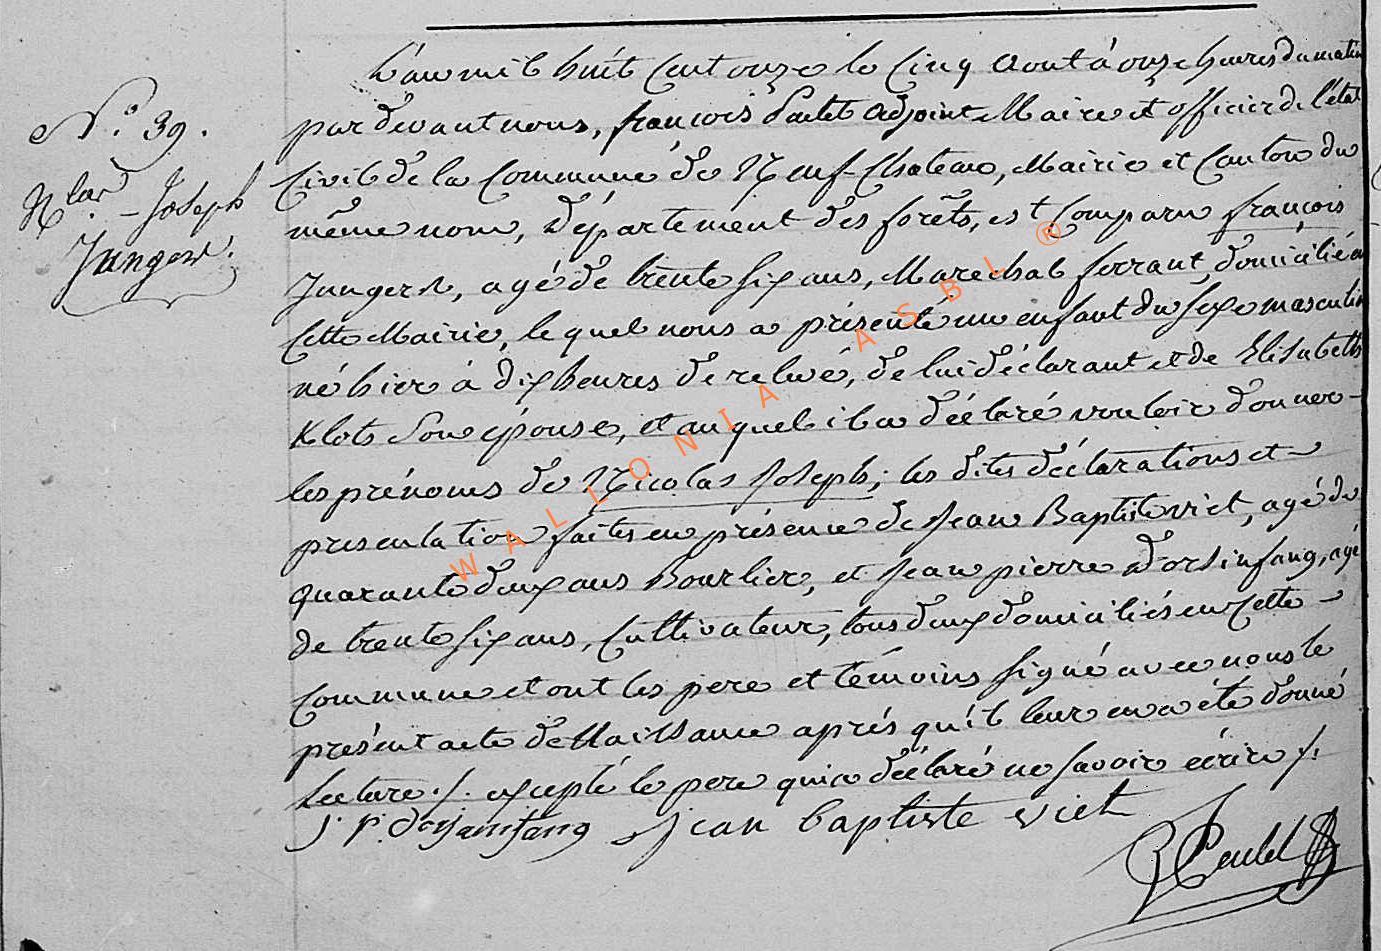 N.° 39.
N.las Joseph
Jungers.
L'an mil huit cent onze le cinq aout à onze heures du matin
par devant nous, françois adjoint Maire et officier de l'état
Civil de la Commune de Neuf-Chateau, Mairie et Canton du
même nom, département des forêts, est Comparu françois
Jungers, agé de trente six ans, Marechal ferrant, domicilié en
Cette Mairie, le quel nous a présenté un enfant du sexe masculin
né hier à dix heures de relevé, de lui déclarant et de Elisabeth
Klots Son épouse, et au quel il a déclaré vouloir donner
les prénoms de Nicolas Joseph; les dites déclarations et
presentation faites en présence de Jean Baptiste viet, agé de
quarante deux ans Bourlier, et Jean pierre Dorsinfang, agé
de trente six ans, Cultivateur, tous deux domiciliés en Cette
Commune et ont les pere et témoins signé avec nous le
présent acte de Naissance aprés qu'il leur en a été donné
Lecture ./. excepté le pere qui a déclaré ne savoir écrire ./.
J. P. dorsainfang Jean baptiste viet
WALLONIA ASBL ®